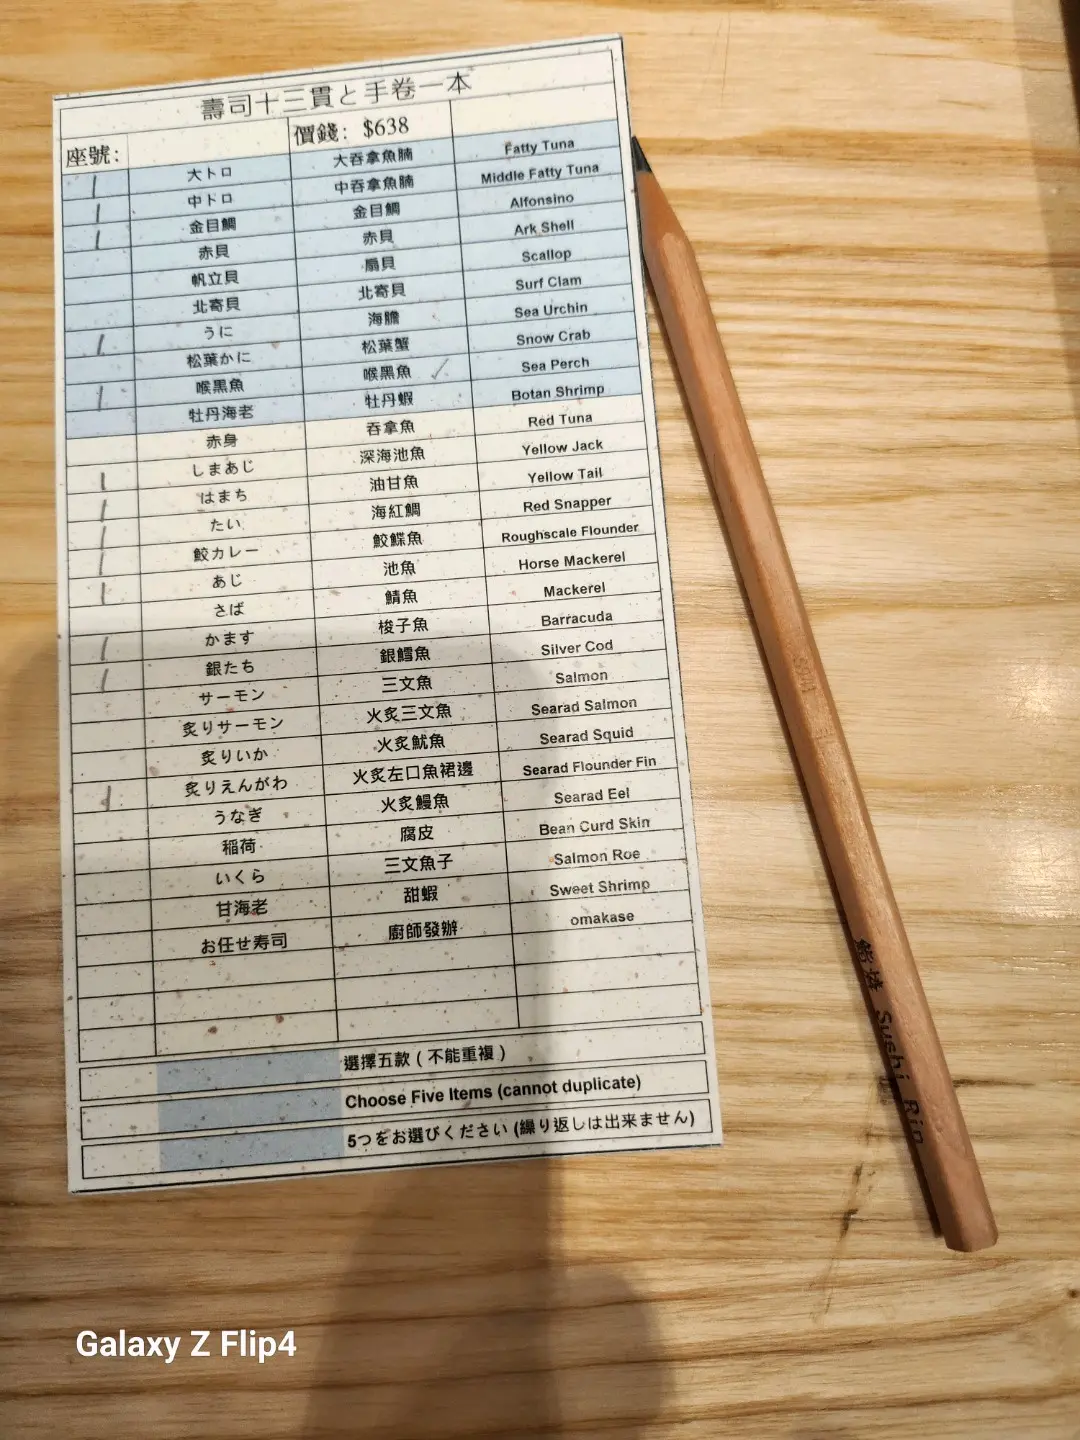 壽司十三貫と手卷一本
座號: 價錢: $638
| 大トロ 大吞拿魚腩 Fatty Tuna
| 中トロ 中吞拿魚腩 Middle Fatty Tuna
| 金目鯛 金目鯛 Alfonsino
赤貝 赤貝 Ark Shell
帆立貝 扇貝 Scallop
北寄貝 北寄貝 Surf Clam
| うに 海膽 Sea Urchin
松葉かに 松葉蟹 Snow Crab
| 喉黑魚 喉黑魚 ✓ Sea Perch
牡丹海老 牡丹蝦 Botan Shrimp
赤身 吞拿魚 Red Tuna
| しまあじ 深海池魚 Yellow Jack
| はまち 油甘魚 Yellow Tail
| たい 海紅鯛 Red Snapper
| 鮫カレー 鮫鰈魚 Roughscale Flounder
| あじ 池魚 Horse Mackerel
さば 鯖魚 Mackerel
| かます 梭子魚 Barracuda
| 銀たち 銀鱈魚 Silver Cod
サーモン 三文魚 Salmon
炙りサーモン 火炙三文魚 Searad Salmon
炙りいか 火炙魷魚 Searad Squid
| 炙りえんがわ 火炙左口魚裙邊 Searad Flounder Fin
うなぎ 火炙鰻魚 Searad Eel
稲荷 腐皮 Bean Curd Skin
いくら 三文魚子 Salmon Roe
甘海老 甜蝦 Sweet Shrimp
お任せ寿司 廚師發辦 omakase
選擇五款 ( 不能重複 )
Choose Five Items (cannot duplicate)
5つをお選びください (繰り返しは出来ません)
Sushi Rin
Galaxy Z Flip4